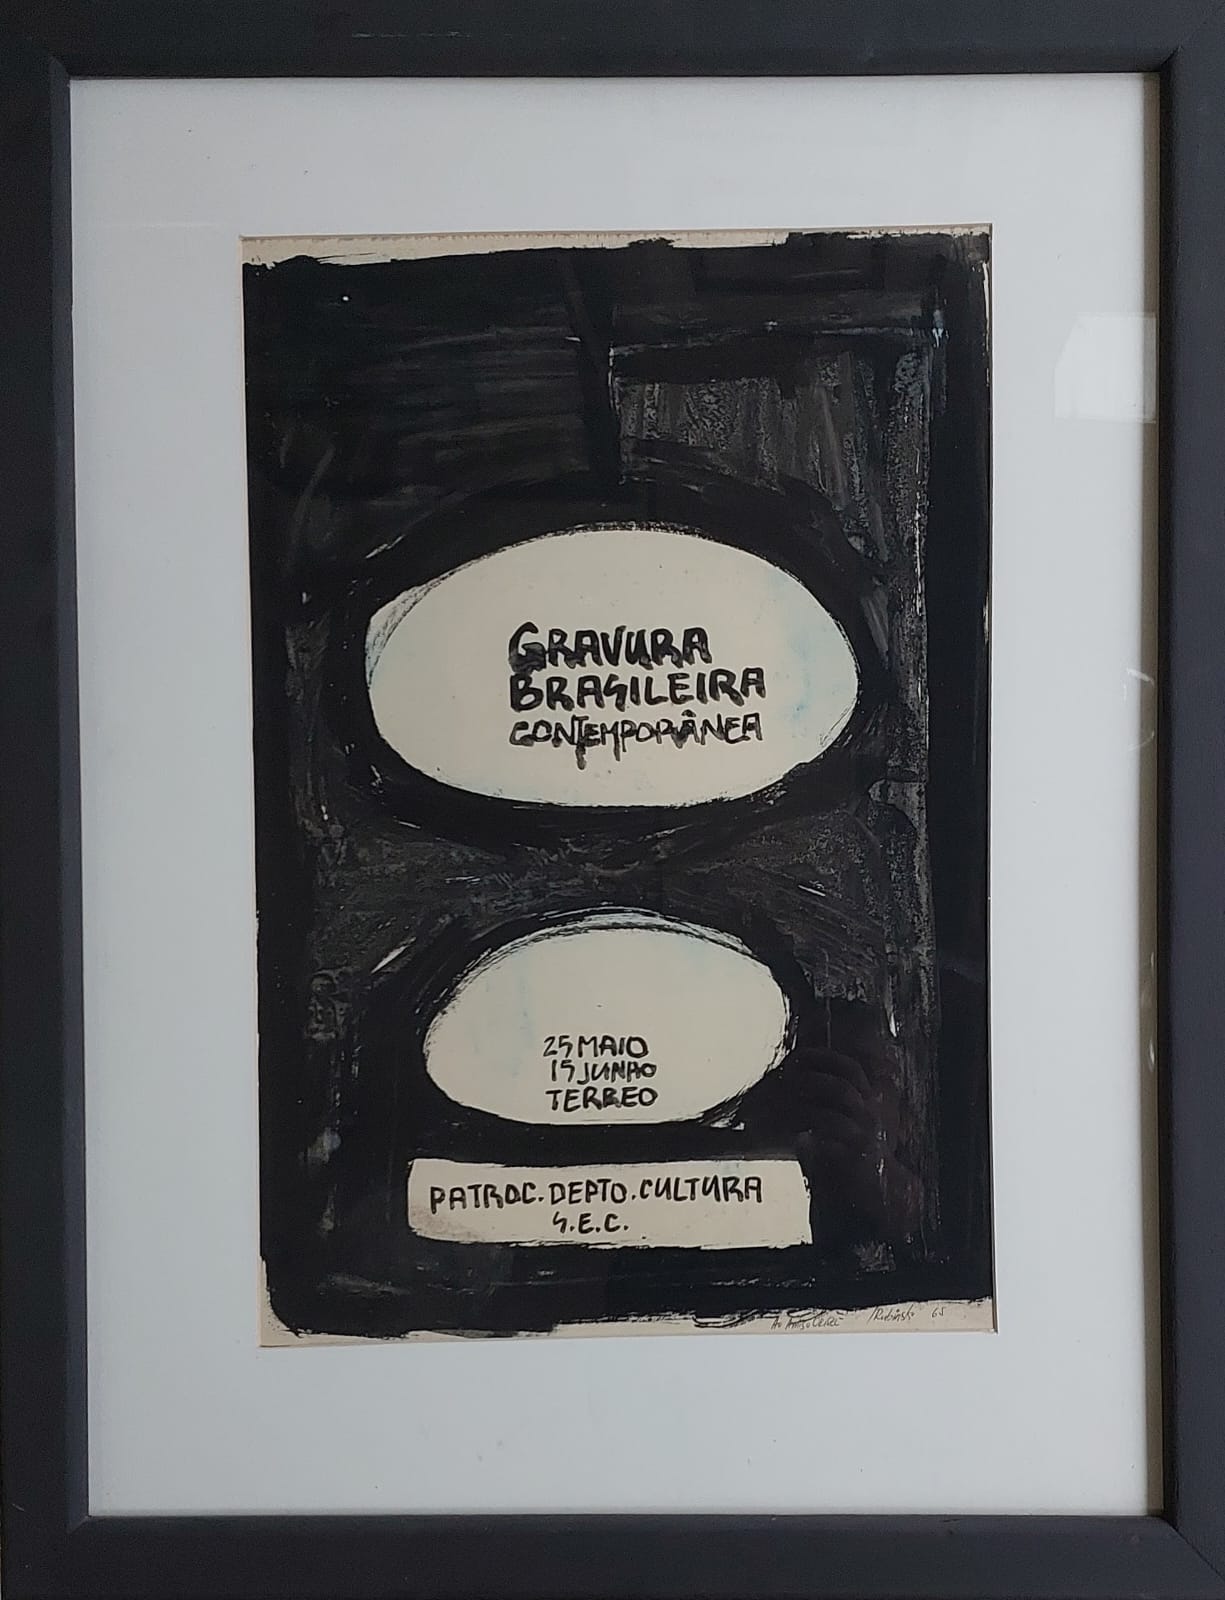 GRAVURA
BRASILEIRA
CONTEMPORÂNEA
25 MAIO
15 JUNHO
TERREO
PATROC. DEPTO. CULTURA
S.E.C.
65